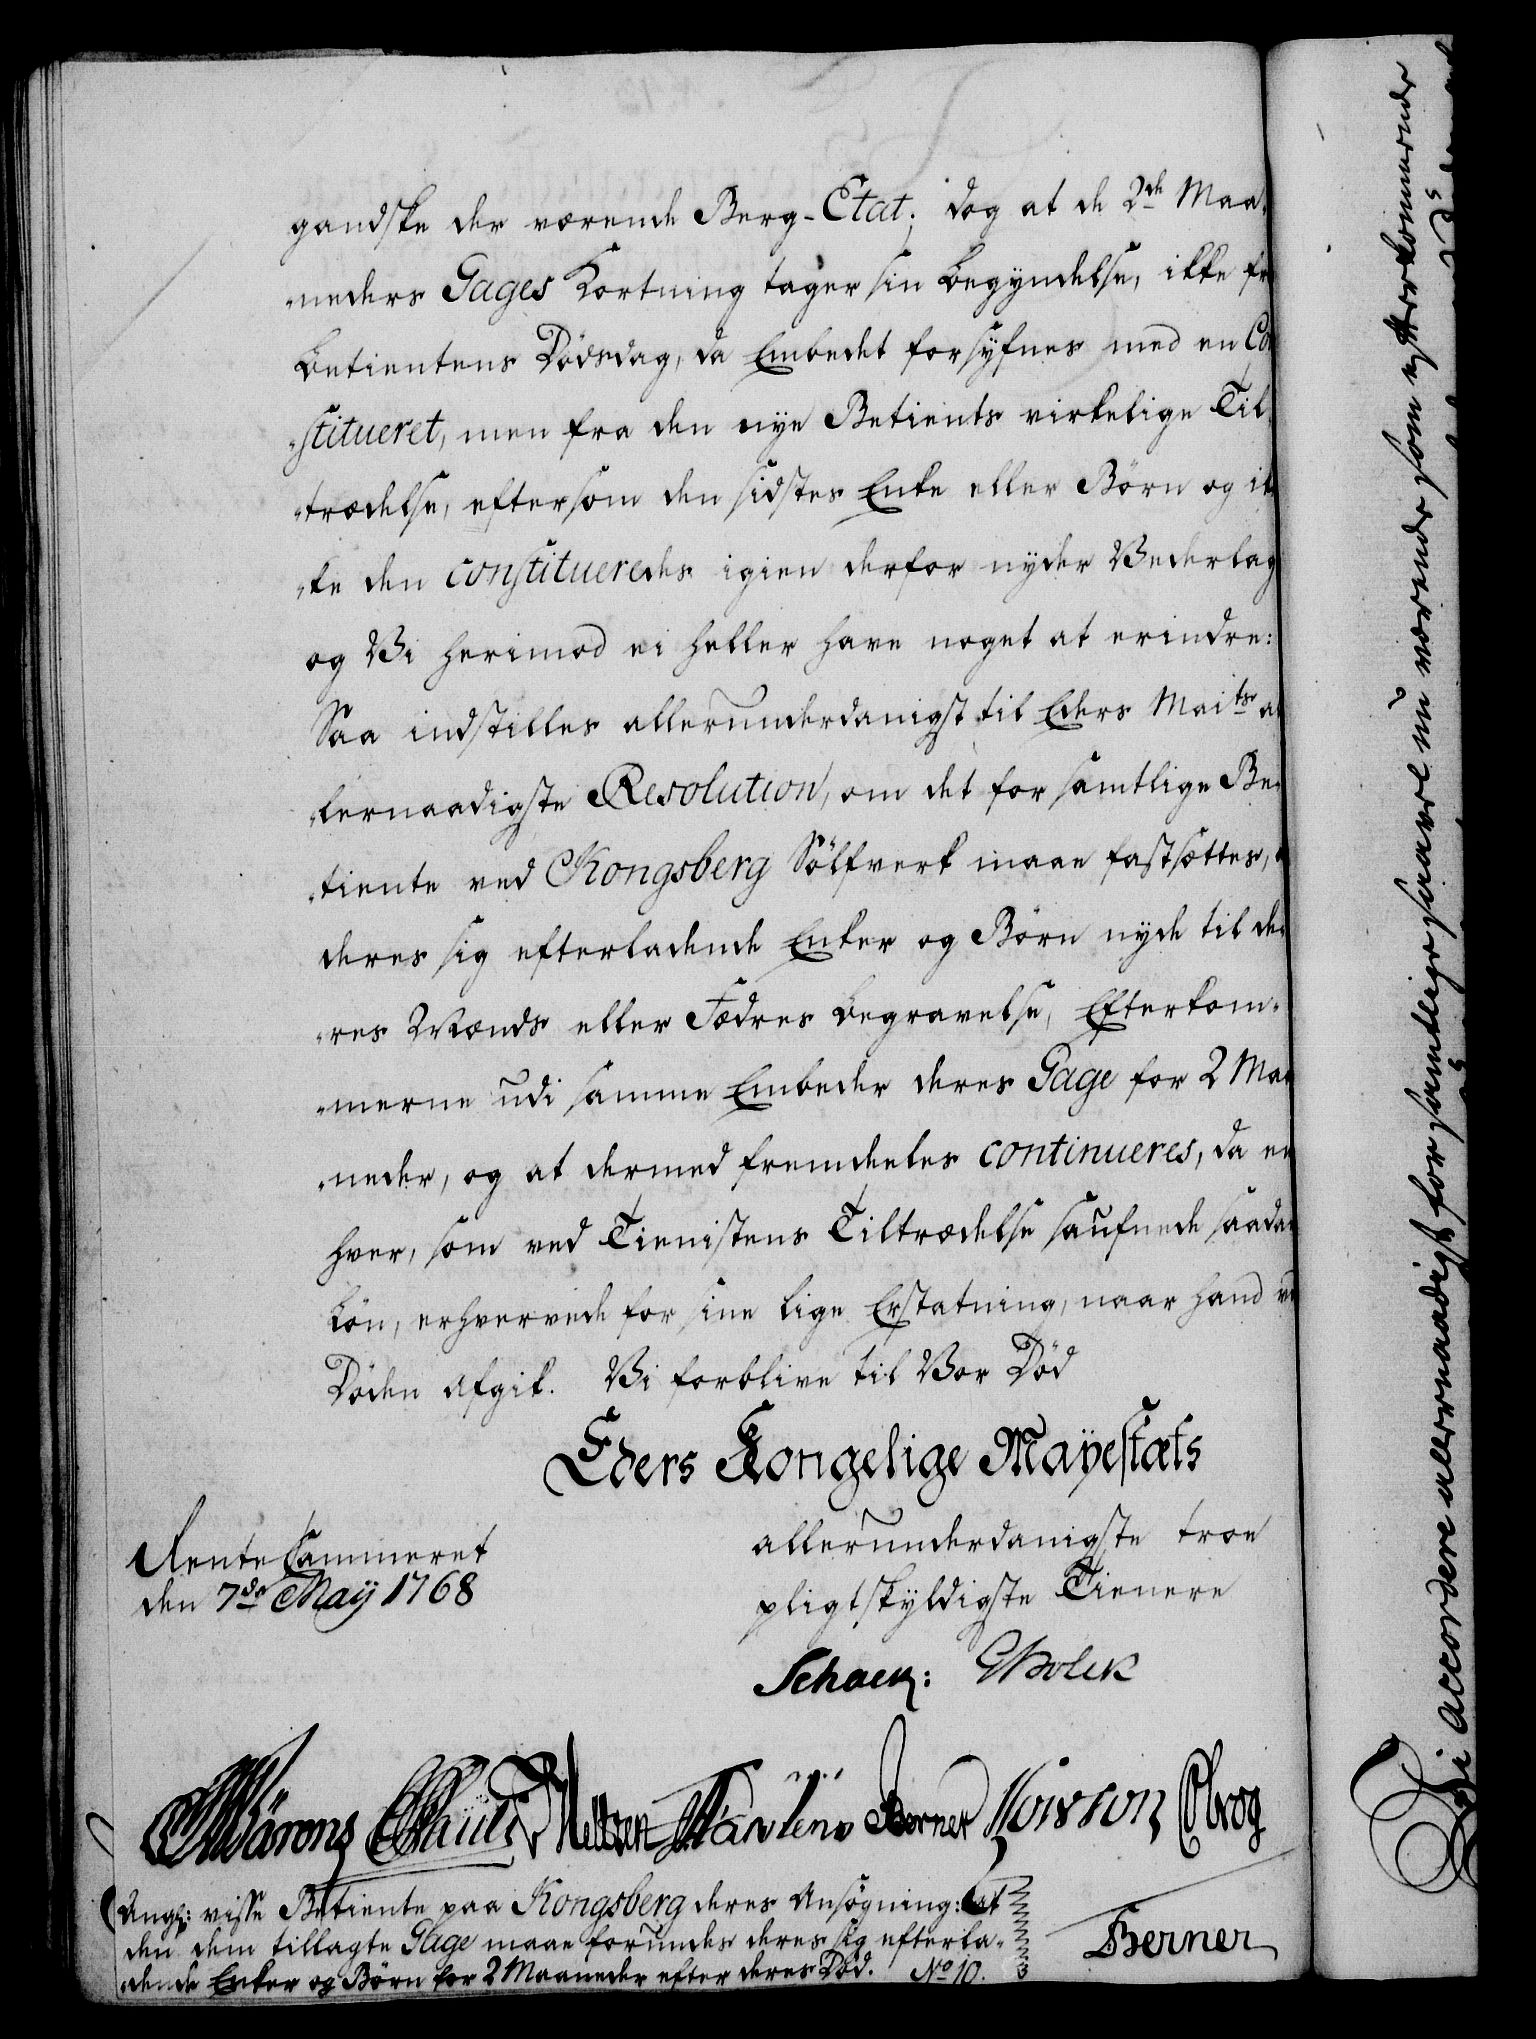 gandske der værende Berg-Etat; dog at de 2de Maa-
-neders Gages Kortning tager sin Begyndelse, ikke fra
Betientens Dødsdag, da Embedet forsyfnes med en Con
-stitueret, men fra den nye Betients virkelige Til-
-trædelse, eftersom den sidstes Enke eller Børn og ik
-ke den constitueredes igien derfor nyder Vederlag
og Vi herimod ei heller have noget at erindre:
Saa indstilles allerunderdanigst til Eders Maits al
-lernaadigste Resolution, om det for samtlige Be-
-tiente ved Kongsberg Sölfverk maae fastsættes, at
deres sig efterladende Enker og Børn nyde til de-
-res Mænds eller Fædres Begravelse, Efterkom-
-merne udi samme Embeder deres Gage for 2 Maa
-neder, og at dermed fremdeeles continueres, da en
hver, som ved Tienistens Tiltrædelse saufnede saadan
Løn, erhvervede for sine lige Erstatning, naar hand ved
Døden afgik. Vi forblive til Vor Død
Eders Kongelige Mayestæts
allerunderdanigste troe
pligtskyldigste Tienere
Rente Cammeret
den 7de Maij 1768
Schack:
Berner
Angh: visse Betiente paa Kongsberg deres Ansøgning: at
den dem tillagte Gage maae forundes deres sig efterla-
-dende Enker og Børn for 2 Maaneder efter deres Død. No 10.
Berner
Vi accordere allernaadigst for samtlige saavel nu værende som efterkommende